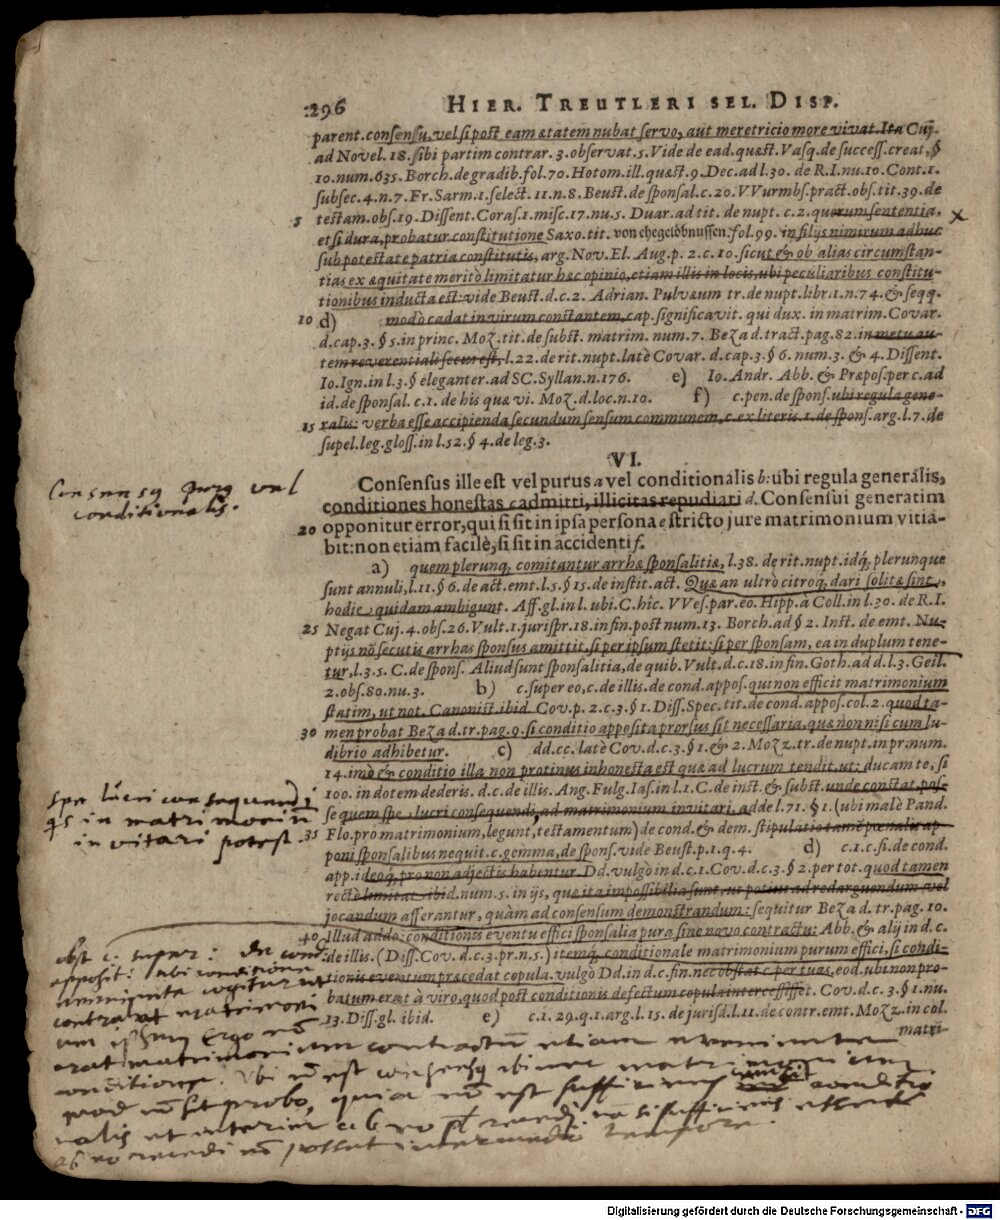 296 HIER. TREUTLERI SEL. DISP.
parent. consensu, vel si post eam ætatem nubat servo, aut meretricio more vivat. Ita Cuj.
ad Novel. 18. sibi partim contrar. 3. observat. 5. Vide de ead. quæst. Vasq. de success. creat, §
10. num. 635. Borch. de gradib. fol. 70. Hotom. ill. quæst. 9. Dec. ad l. 30. de R. I. nu. 10. Cont. 1.
subsec. 4. n. 7. Fr. Sarm. 1. select. 11. n. 8. Beust. de sponsal. c. 20. VVurmbs. pract. obs. tit. 39. de
5 testam. obs. 19. Dissent. Coras. 1. misc. 17. nu. 5. Duar. ad tit. de nupt. c. 2. quorum sententia, x
etsi dura, probatur constitutione Saxo. tit. von ehegelöbnussen. fol. 99. in filijs nimirum adhuc
sub potestate patria constitutis, arg. Nov. El. Aug. p. 2. c. 10. sicut & ob alias circumstan-
tias ex æquitate merito limitatur hæc opinio, etiam illis in locis, ubi peculiaribus constitu-
tionibus inducta est: vide Beust. d. c. 2. Adrian. Pulvæum tr. de nupt. libr. 1. n. 74. & seqq.
10 d) modò cadat in virum constantem, cap. significavit. qui dux. in matrim. Covar.
d. cap. 3. § 5. in princ. Moz. tit. de subst. matrim. num. 7. Beza d. tract. pag. 82. in metu au-
tem reverentiali secus est, l. 22. de rit. nupt. latè Covar. d. cap. 3. § 6. num. 3. & 4. Dissent.
Io. Ign. in l. 3. § eleganter. ad SC. Syllan. n. 176. e) Io. Andr. Abb. & Præpos. per c. ad
id. de sponsal. c. 1. de his quæ vi. Moz. d. loc. n. 10. f) c. pen. de spons. ubi regula gene-
15 ralis: verba esse accipienda secundum sensum communem, c. ex literis. 1. de spons. arg. l. 7. de
supel. leg. gloss. in l. 52. § 4. de leg. 3.
VI.
Consensus ille est vel purus a vel conditionalis b: ubi regula generalis,
conditiones honestas c admitti, illicitas repudiari d. Consensui generatim
20 opponitur error, qui si sit in ipsa persona e stricto jure matrimonium vitia-
bit: non etiam facilè, si sit in accidenti f.
Consensus purus vel
conditionalis.
a) quem plerunq; comitantur arrhæ sponsalitiæ, l. 38. de rit. nupt. idq; plerunque
sunt annuli, l. 11. § 6. de act. emt. l. 5. § 15. de instit. act. Quæ an ultro citroq; dari solitæ sint,
hodie quidam ambigunt. Aff. gl. in l. ubi. C. hîc. VVes. par. eo. Hipp. à Coll. in l. 30. de R. I.
25 Negat Cuj. 4. obs. 26. Vult. 1. jurispr. 18. in fin. post num. 13. Borch. ad § 2. Inst. de emt. Nu-
ptijs nõ secutis arrhas sponsus amittit, si per ipsum stetit: si per sponsam, ea in duplum tene-
tur, l. 3. 5. C. de spons. Aliud sunt sponsalitia, de quib. Vult. d. c. 18. in fin. Goth. ad d. l. 3. Geil.
2. obs. 80. nu. 3. b) c. super eo, c. de illis. de cond. appos. qui non efficit matrimonium
statim, ut not. Canonist. ibid. Cov. p. 2. c. 3. § 1. Diss. Spec. tit. de cond. appos. col. 2. quod ta-
30 men probat Beza d. tr. pag. 9. si conditio apposita prorsus sit necessaria. quæ non nisi cum lu-
dibrio adhibetur. c) dd. cc. latè Cov. d. c. 3. § 1. & 2. Mozz. tr. de nupt. in pr. num.
14. imò & conditio illa non protinus inhonesta est quæ ad lucrum tendit, ut: ducam te, si
100. in dotem dederis. d. c. de illis. Ang. Fulg. Ias. in l. 1. C. de inst. & subst. unde constat pos-
se quem spe lucri consequendi, ad matrimonium invitari. adde l. 71. § 1. (ubi malè Pand.
35 Flo. pro matrimonium, legunt, testamentum) de cond. & dem. stipulatio tamẽ pœnalis ap-
poni sponsalibus nequit. c. gemma, de spons. vide Beust. p. 1. q. 4. d) c. 1. c. fi. de cond.
app. ideoq; pro non adjectis habentur. Dd. vulgò in d. c. 1. Cov. d. c. 3. § 2. per tot. quod tamen
rectè limitat ibid. num. 5. in ijs, quæ ita impossibilia sunt, ut potius ad redarguendum vel
jocandum asserantur, quàm ad consensum demonstrandum: sequitur Beza d. tr. pag. 10.
40 Illud adde: conditionis eventu effici sponsalia pura sine novo contractu: Abb. & alij in d. c.
de illis. (Diss. Cov. d. c. 3. pr. n. 5.) itemq; conditionale matrimonium purum effici, si condi-
tionis eventum præcedat copula. vulgò Dd. in d. c. fin. nec obstat c. per tuas, eod. ubi non pro-
batum erat à viro, quod post conditionis defectum copula intercessisset. Cov. d. c. 3. § 1. nu.
13. Diss. gl. ibid. e) c. 1. 29. q. 1. arg. l. 15. de jurisd. l. 11. de contr. emt. Mozz. in col.
matri-
spe lucri consequendi
qs in matrimoniũ
invitari potest.
obst. c. super: de cond.
apposit: ubi conditione
contrahat matrimoni
um ipsum Ergo nõ
erat matrimonium contractũ etiam eveniente
conditione. Ubi nõ est consensq ibi nec matrimonium
quod nõ sit probo, quia nõ est sufficiens conditio
nalis et interim ab eo
ab eo recedi nõ posset intermedio tempore.
Digitalisierung gefördert durch die Deutsche Forschungsgemeinschaft - DFG